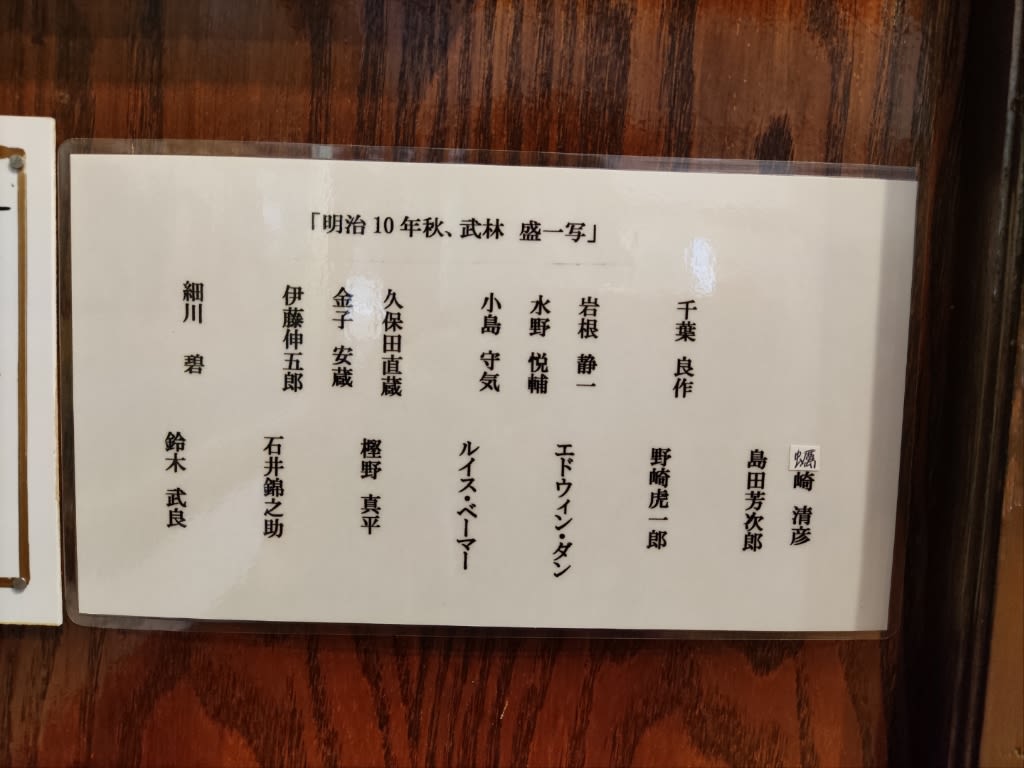 「明治10年秋、武林 盛一写」
千葉 良作
岩根 静一
水野 悦輔
小島 守気
久保田直蔵
金子 安蔵
伊藤伸五郎
細川 碧
蠣崎 清彦
島田芳次郎
野崎虎一郎
エドウィン・ダン
ルイス・ベーマー
樫野 真平
石井錦之助
鈴木 武良